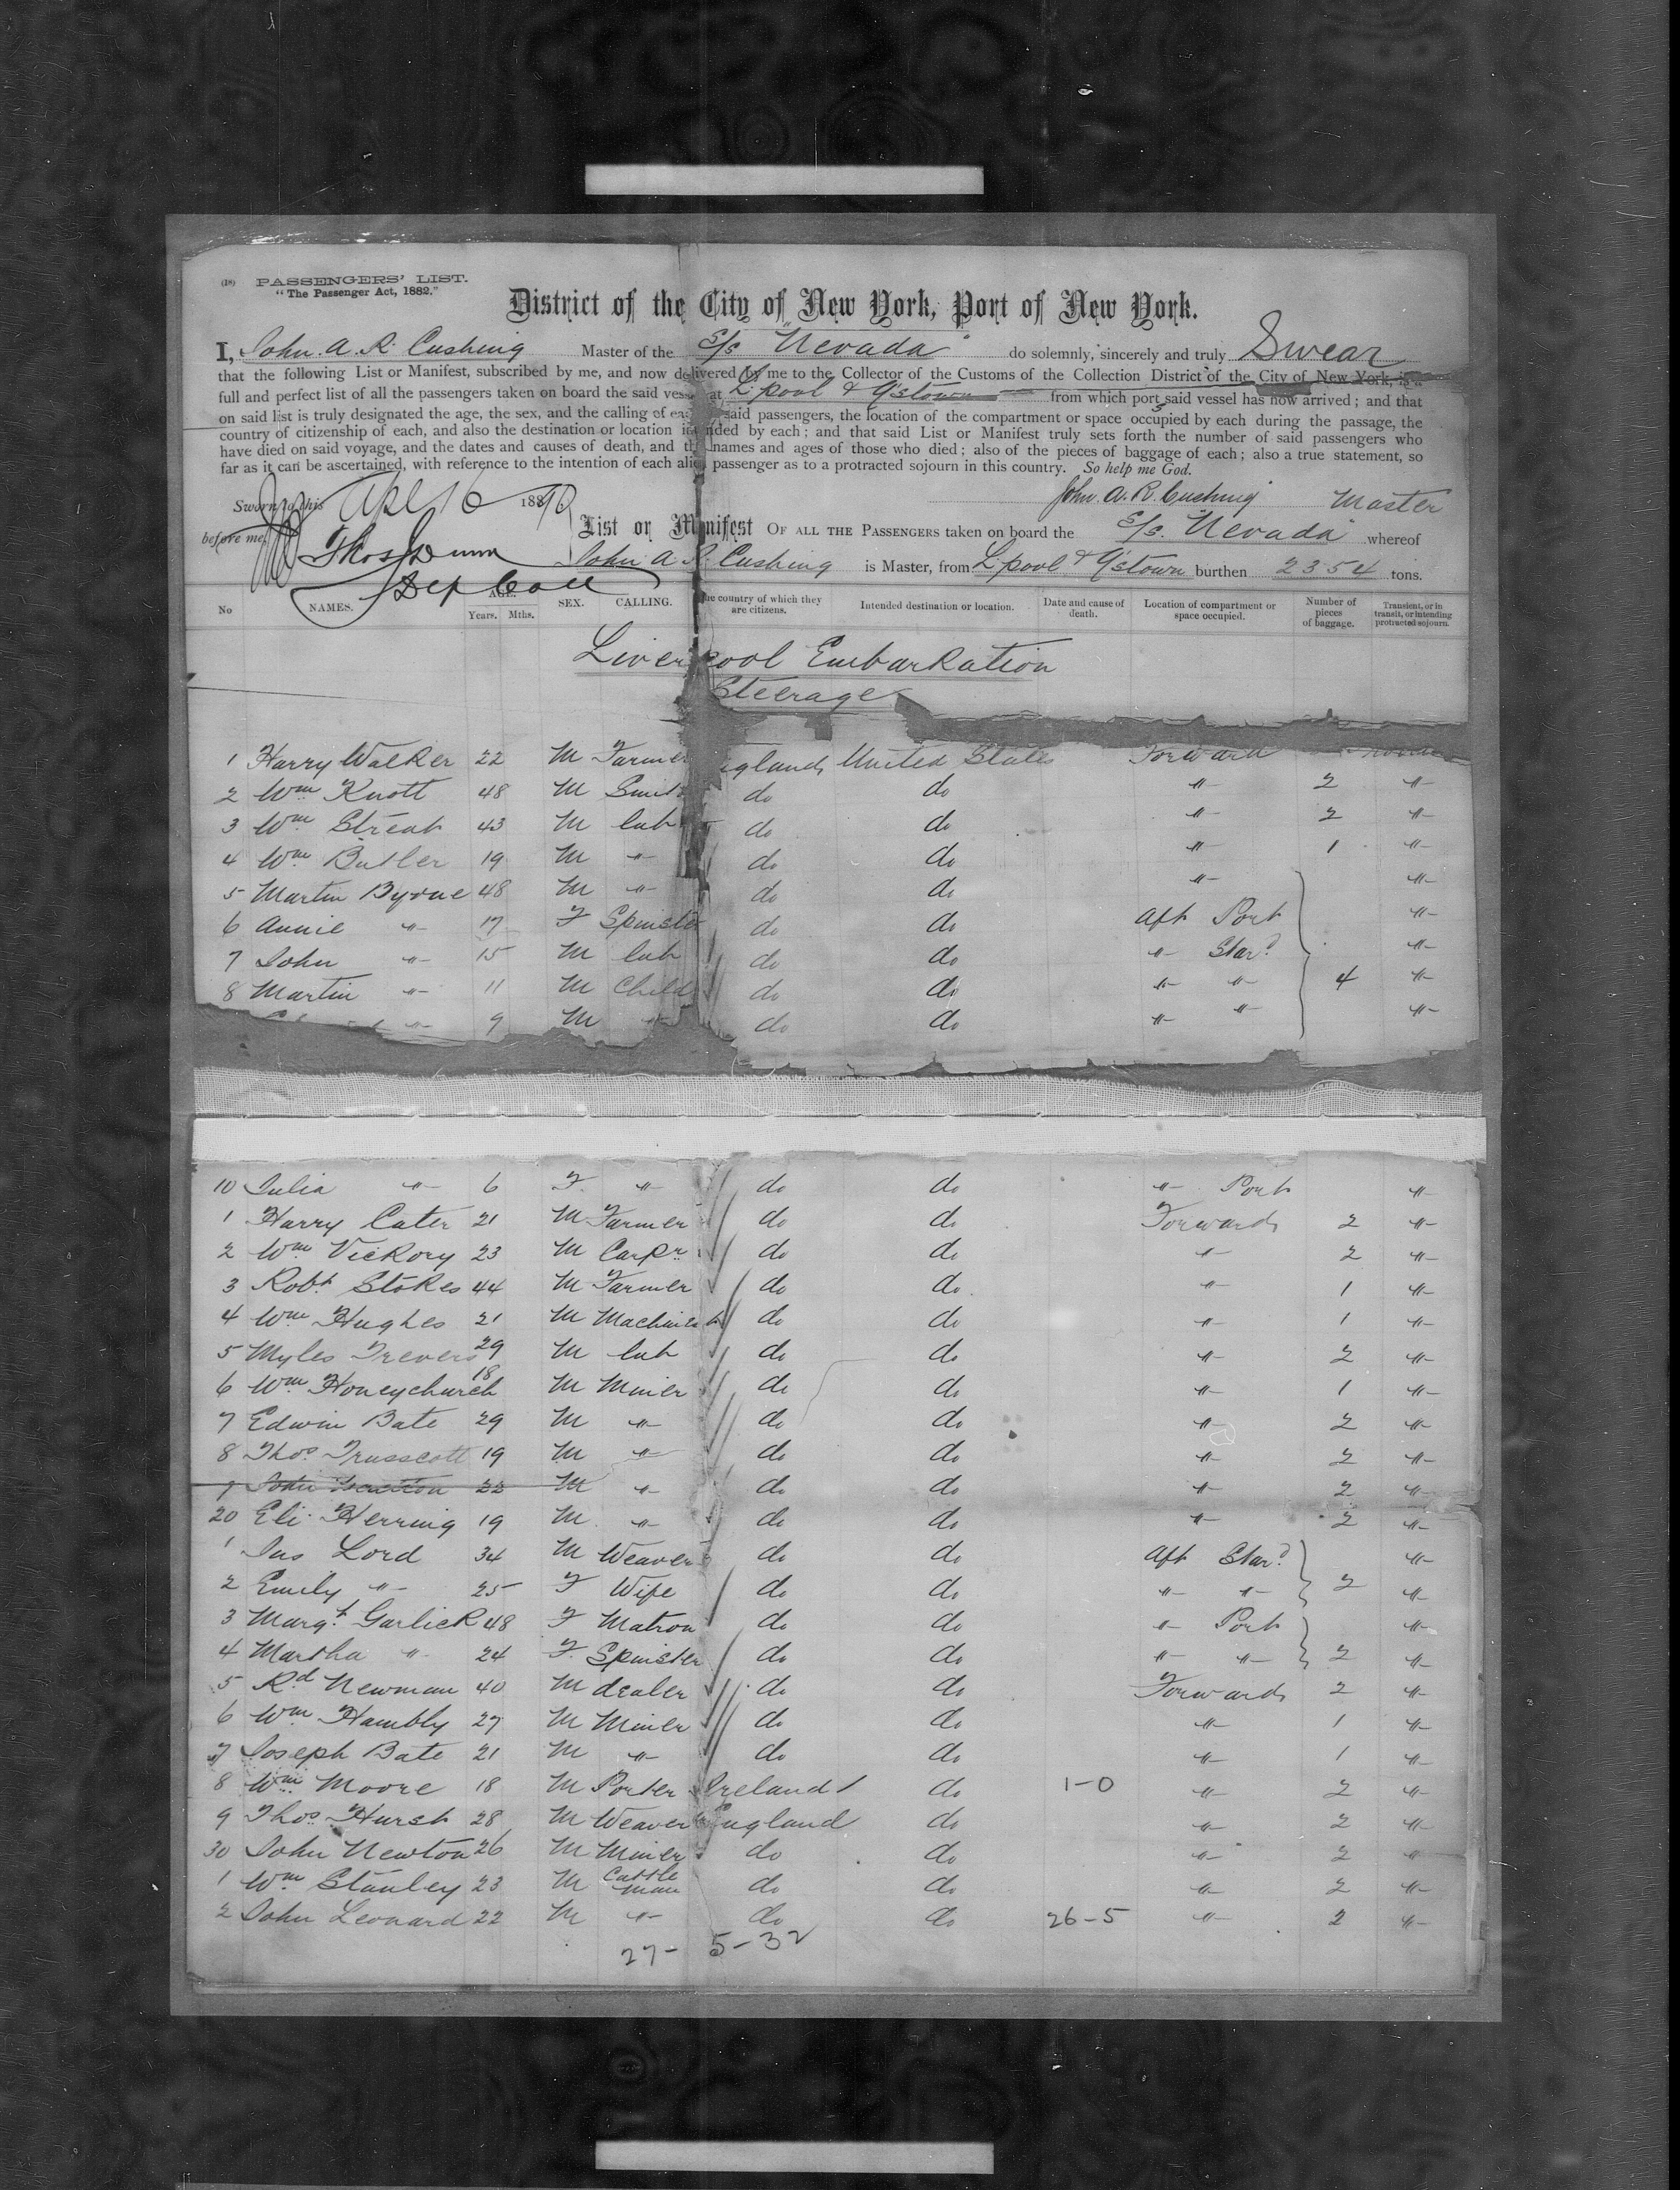 (18) PASSENGERS' LIST.
"The Passenger Act, 1882."
District of the City of New York, Port of New York.
I, John A. R. Cushing Master of the S/s "Nevada" do solemnly, sincerely and truly Swear
that the following List or Manifest, subscribed by me, and now delivered by me to the Collector of the Customs of the Collection District of the City of New York, is a
full and perfect list of all the passengers taken on board the said vessel at L'pool & Q'stown from which port said vessel has now arrived; and that
on said list is truly designated the age, the sex, and the calling of ea said passengers, the location of the compartment or space occupied by each during the passage, the
country of citizenship of each, and also the destination or location intended by each; and that said List or Manifest truly sets forth the number of said passengers who
have died on said voyage, and the dates and causes of death, and the names and ages of those who died; also of the pieces of baggage of each; also a true statement, so
far as it can be ascertained, with reference to the intention of each alien passenger as to a protracted sojourn in this country. So help me God.
Sworn to this Apl 16 1890 John. A. R. Cushing Master
before me Thos Dunn
Dep Coll
List or Manifest OF ALL THE PASSENGERS taken on board the S/s. "Nevada" whereof
John A R Cushing is Master, from L'pool & Q'stown burthen 2354 tons.
No NAMES. AGE. Years. Mths. SEX. CALLING. The country of which they are citizens. Intended destination or location. Date and cause of death. Location of compartment or space occupied. Number of pieces of baggage. Transient, or in transit, or intending protracted sojourn.
Liverpool Embarkation
Steerage
1 Harry Walker 22 M Farmer England United States Forward
2 Wm Knott 48 M Smith do do " 2 "
3 Wm Streat 43 M Lab do do " 2 "
4 Wm Butler 19 M " do do " 1 "
5 Martin Byrne 48 M " do do " "
6 Annie " 17 F Spinster do do Aft Port "
7 John " 15 M Lab do do " Star? "
8 Martin " 11 M Child do do " " 4 "
" 9 M " do do " " "
10 Julia " 6 F. " do do " Port "
1 Harry Cater 21 M Farmer do do Forwards 2 "
2 Wm Vickory 23 M Carpr do do " 2 "
3 Robt Stokes 44 M Farmer do do. " 1 "
4 Wm Hughes 21 M Machinist do do " 1 "
5 Myles Trevers 29 M Lab do do " 2 "
6 Wm Honeychurch 18 M Miner do do " 1 "
7 Edwin Bate 29 M " do do " 2 "
8 Thos Trusscott 19 M " do do " 2 "
9 John 22 M " do do " 2 "
20 Eli Herring 19 M. " do do " 2 "
1 Jas Lord 34 M Weaver do do Aft Star? "
2 Emily " 25 F Wife do do " " 2 "
3 Margt Garlick 48 F Matron do do " Port "
4 Martha " 24 F. Spinster do do " " 2 "
5 Rd Newman 40 M dealer do do Forwards 2 "
6 Wm Hambly 27 M Miner do do " 1 "
7 Joseph Bate 21 M " do do " 1 "
8 Wm Moore 18 M Porter Ireland do 1-0 " 2 "
9 Thos Hurst 28 M Weaver England do " 2 "
30 John Newton 26 M Miner do do " 2 "
1 Wm Stanley 23 M Cattle man do do " 2 "
2 John Leonard 22 M " do do 26-5 " 2 "
27- 5-32